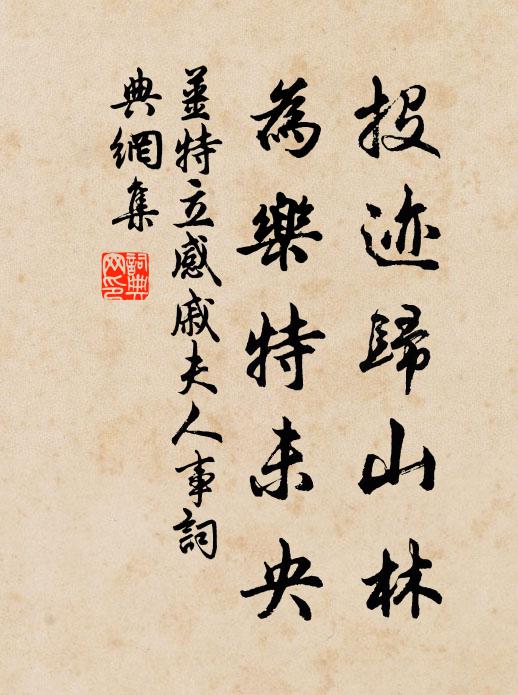 投迹歸山林
為樂特未央
薑特立感戚夫人事詞
典網集
詞典
网印